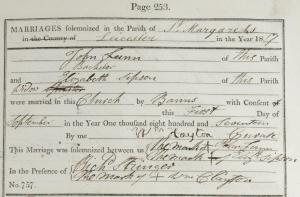 Page 253.
MARRIAGES solemnized in the Parish of St. Margarets
in the County of Leicester in the Year 1817
John Lunn of this Parish
Bachelor
and Elizabeth Sipson of this Parish
Widow
were married in this Church by Banns with Consent of
this First Day of
September in the Year One thousand eight hundred and Seventeen
By me Wm Hayton Curate
This Marriage was solemnized between us The mark of John Lunn
The mark of Sipson
In the Presence of Richd Stringer
The Mark of Clayton
No. 757.